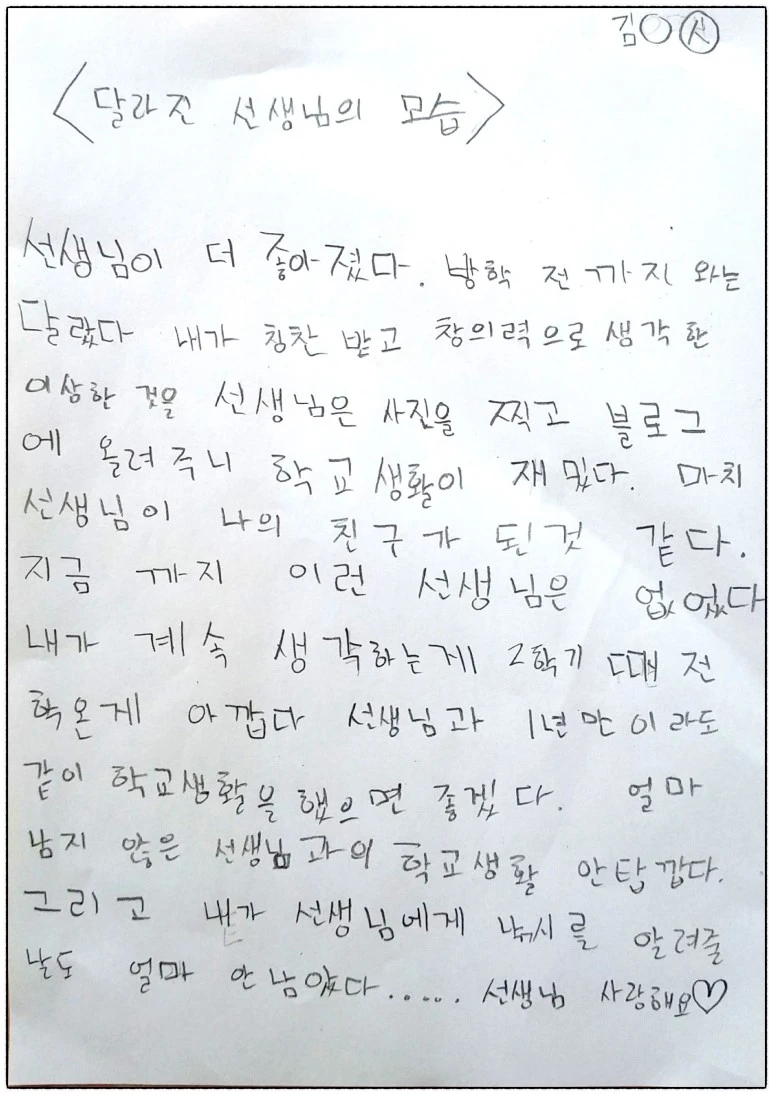 김○시
<달라진 선생님의 모습>
선생님이 더 좋아졌다. 방학 전 까지 와는
달랐다 내가 칭찬 받고 창의력으로 생각한
이상한 것을 선생님은 사진을 찍고 블로그
에 올려주니 학교생활이 재밌다. 마치
선생님이 나의 친구가 된것 같다.
지금 까지 이런 선생님은 없었다
내가 계속 생각하는게 2학기 때 전
학온게 아깝다 선생님과 1년만이라도
같이 학교생활을 했으면 좋겠다. 얼마
남지 않은 선생님과의 학교생활 안탑깝다.
그리고 내가 선생님에게 낚시를 알려줄
날도 얼마 안남았다...... 선생님 사랑해요♡